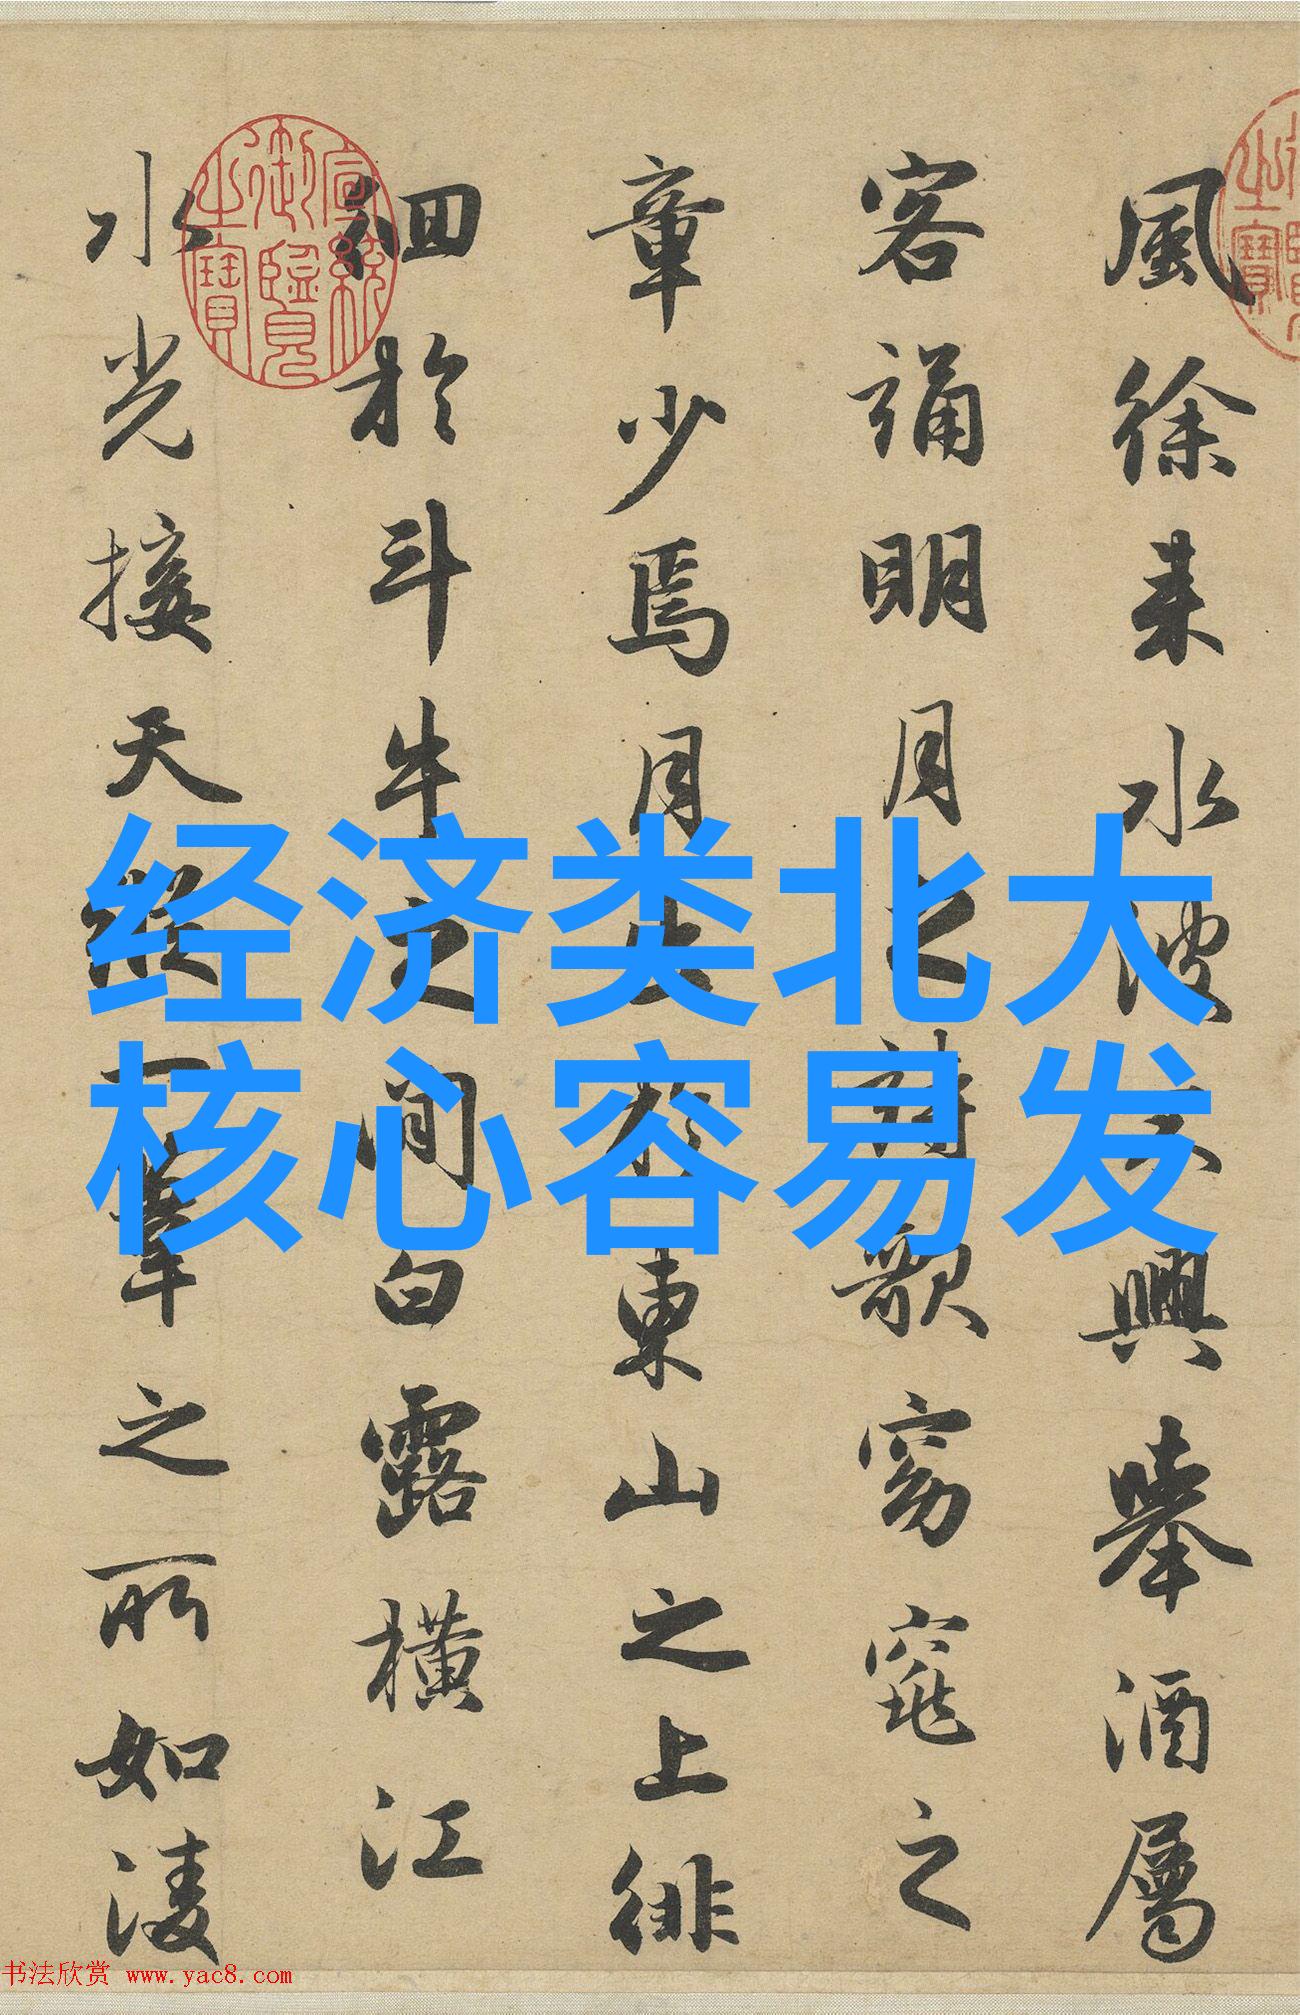 風徐来水波不興舉酒屬
客誦明月之詩歌窈窕之
章少焉月出於東山之上徘
徊於斗牛之間白露橫江
水光接天縱一葦之所如凌
宣統御覽之寶
经济类北大
核心容易发
书法欣赏 www.yac8.com